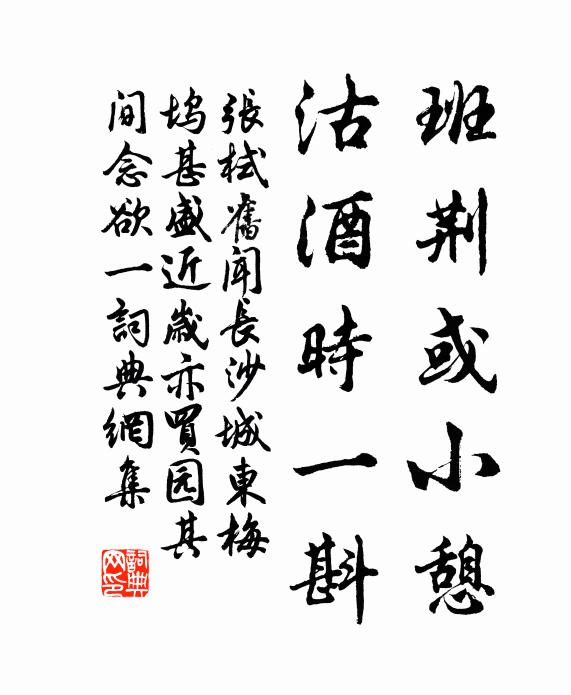 班荆或小憩
沽酒時一斟
張栻舊聞長沙城東梅
塢甚盛近歲亦買园其
间念欲一詞典網集
詞典網印